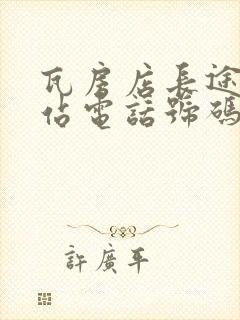 瓦房店長途
佔電話號碼
許廣平